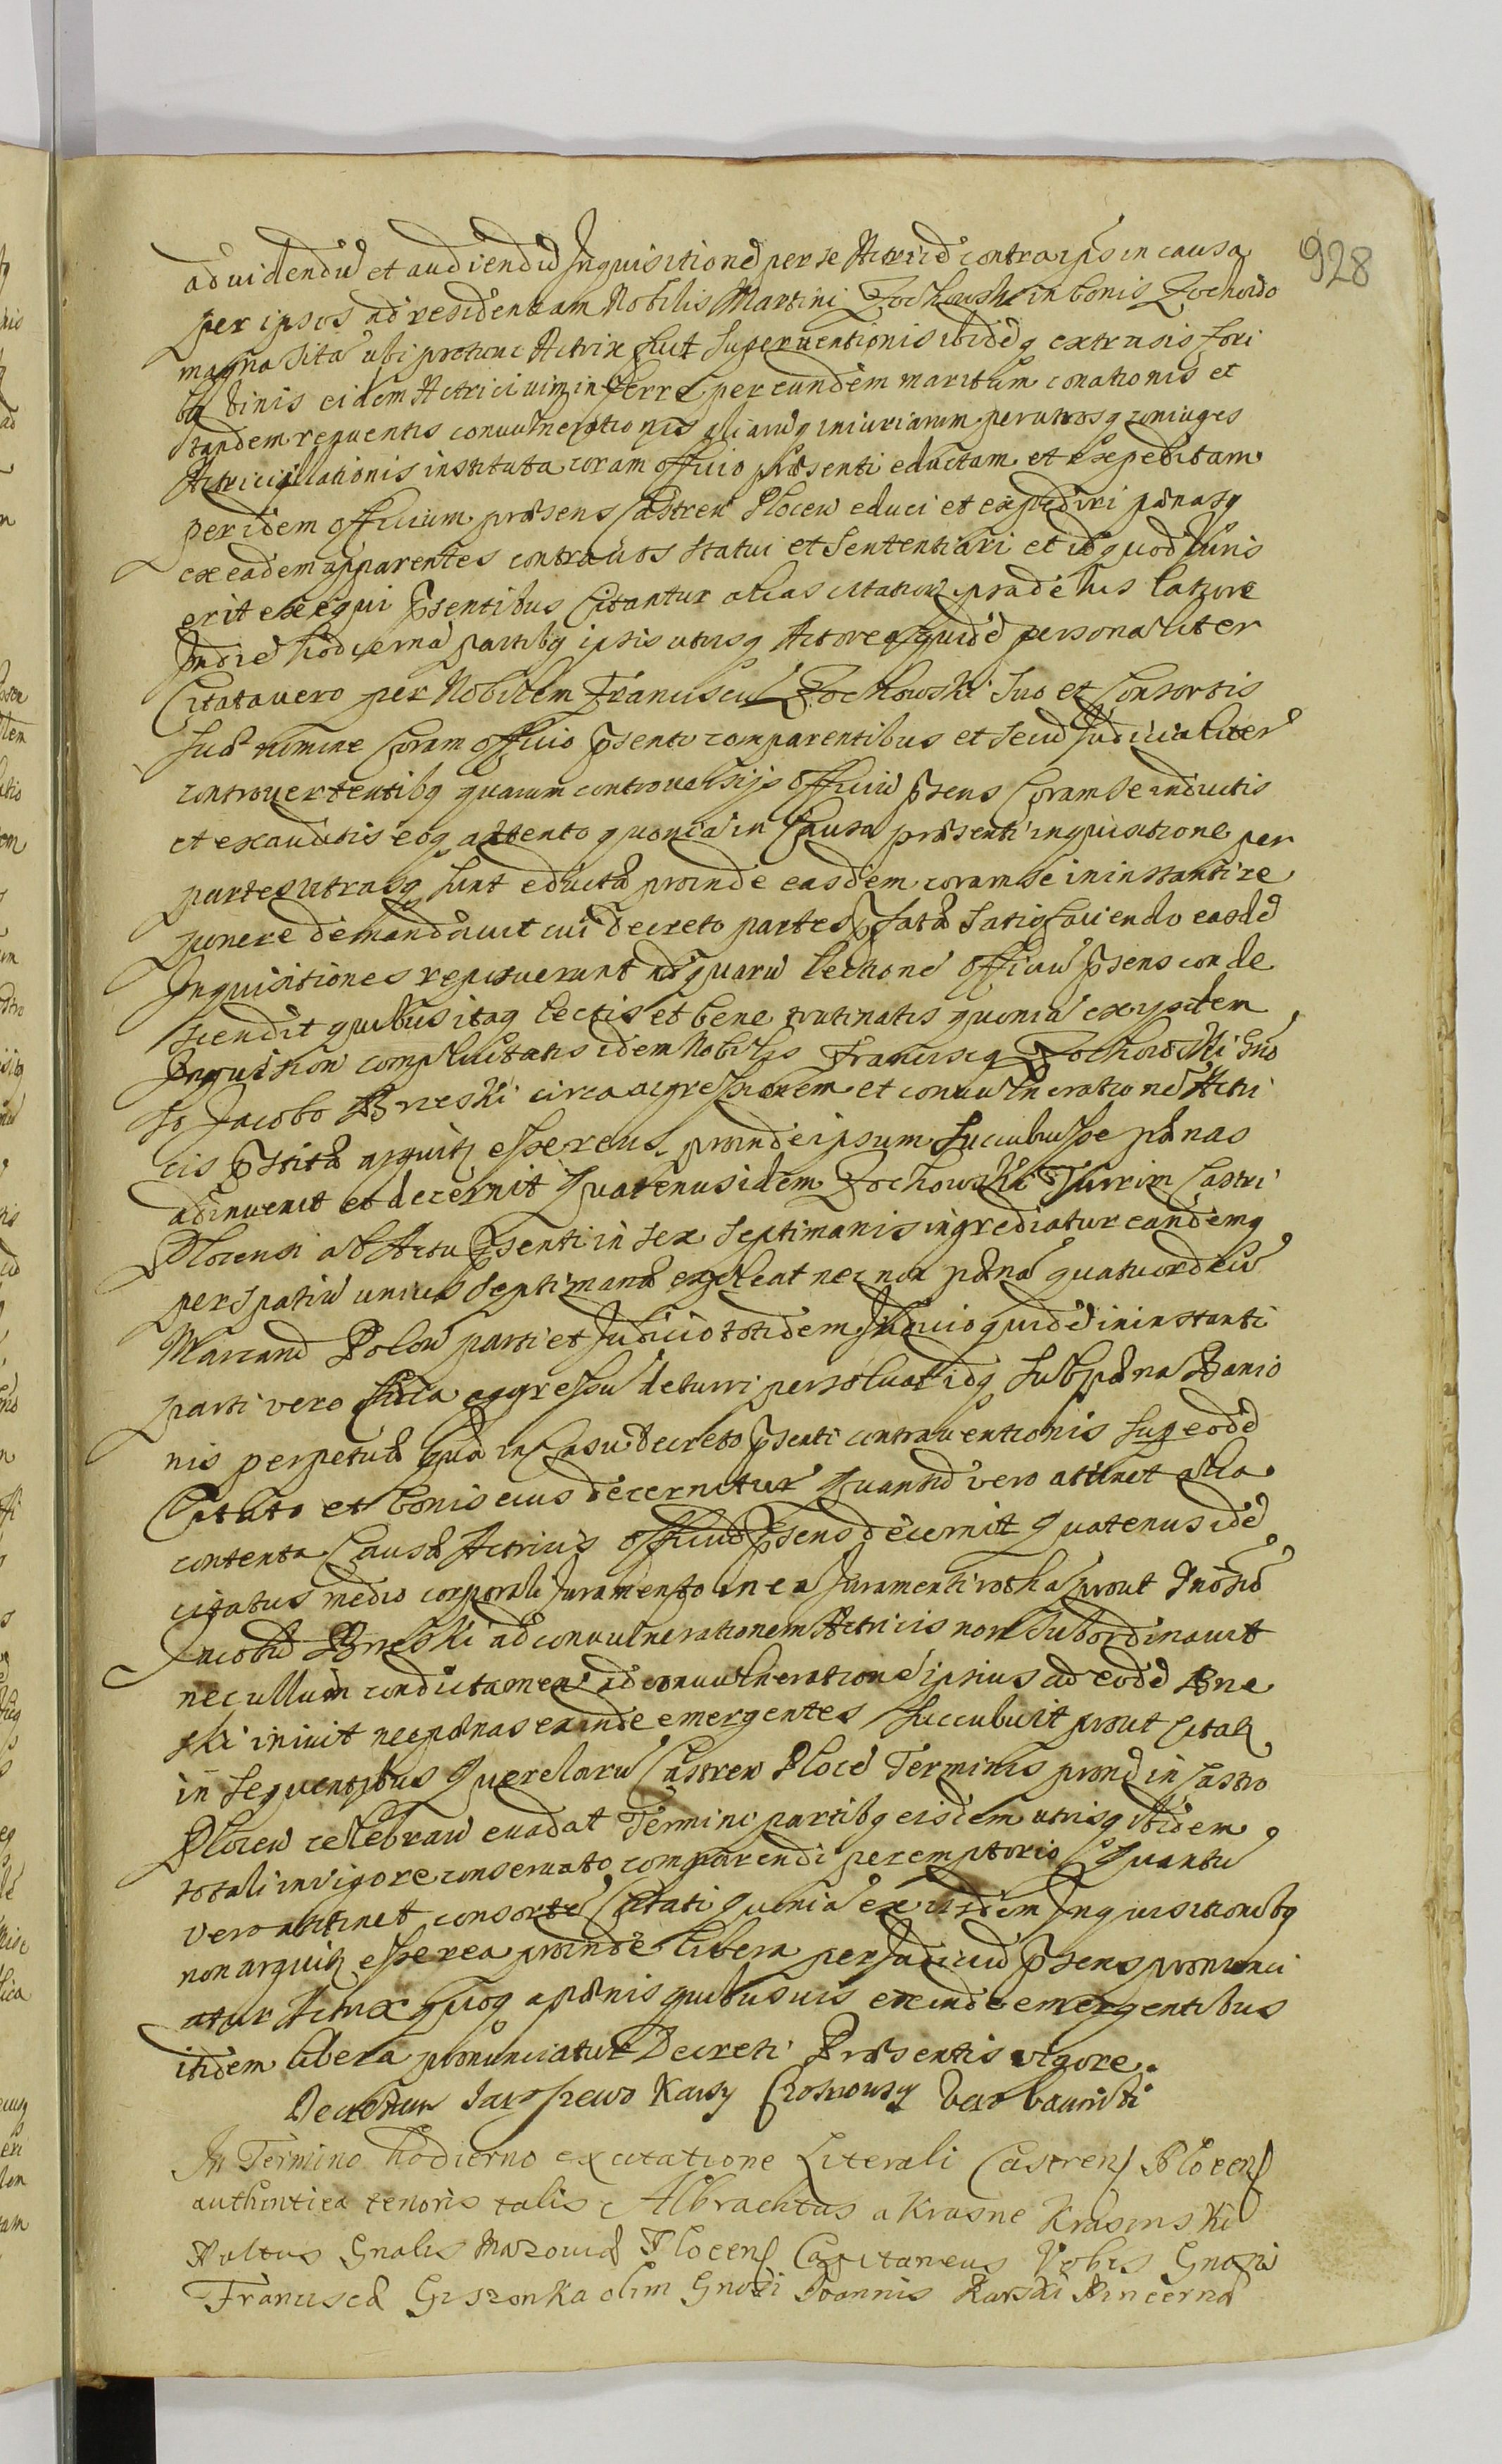 928
ad uidendũ et audiendũ Inquisitionẽ per se Actricẽ contra ips in causa
per ipsos ad residentiam Nobilis Martini Zochowski in bonis Zochowo
magna sita ubi protunc Actrix fuit superuentionis ibidẽq extrusis fori
bq binis eidem Actrici uim inferre per eundem maritum conationis et
tandem sequentis conuulnerationis aliarũq iniuriarum per utrosq coniuges
Actrici illationis instituta coram officio præsenti eductam et expeditam
per idem officium præsens Castren Plocen educi et expediri pænasq
ex eadem apparentes contra uos statui et sententiari et id quod Iuris
erit exequi Psentibus Citantur alias citation
In die hodierna partibq ipsis utrisq Actore quidẽ personaliter
Citata uero per Nobilem Franciscũ Zochowski suo et Consortis
suæ nomine Coram officio Psenti comparentibus et secũ Iudicialiter
controuertentibq quarum controuersijs officiũ Psens Coram se inductis
et exauditis eoq attento quoniã in Causa præsenti inquisitione per
partes utrasq sunt eductæ proinde easdem coram se in instanti re
ponere demandauit cui decreto partes Pfatæ satisfaciendo easdẽ
Inquisitiones reposuerunt ad quarũ lectionẽ officiũ Psens conde
scendit quibus itaq lectis et bene trutinatis quoniã ex ijsdem
Inquisition complicitatis idem Nobilis Franciscq Zochowski Gno
so Jacobo Brzeski circa agressionem et conuulnerationẽ Actri
cis Pstitæ arguitq esse reus proinde ipsum succubuisse pænas
adinuenit et decernit Quatenus idem Zochowski Turrim Castri
Plocensi ab Actu Psenti in sex septimanis ingrediatur eandemq
per spatiũ unius septimanæ expleat nec non pænã quatuordecĩ
Marcarũ Polon parti et Iudicio totidem Iudicio quidẽ in instanti
parti vero circa egressũ de turri persoluat idq sub pæna Banio
nis perpetuæ quã in casu decreto Psenti contrauentionis sup eodẽ
Citato et bonis eius decernitur Quantũ vero attinet alia
contenta Causæ Actricis officiũ Psens decernit Quatenus idẽ
citatus medio corporali Iuramento in ea Iuramenti rotha prout Gnosũ
Jacobũ Brzeski ad conuulnerationem Actricis non subordinauit
nec ullum condictamen ad conuulnerationẽ ipsius cũ eodẽ Brze
ski iniuit nec pænas exinde emergentes succubuit prout Citatq
in sequentibus Querelarũ Castren Plocẽ Terminis proxĩ in Castro
Plocen celebran euadat Termino partibq eisdem utrisq ibidem
totali in vigore conseruato comparendi peremptorio Quantũ
vero attinet consortẽ Citati quoniã ex ijsdem Inquisitionibq
non arguitq esse rea proinde libera per Iudiciũ Psens pronunci
atur Actrix quoq a pænis quibusuis exinde emergentibus
itidem libera pronunciatur Decreti Præsentis vigore.
In Termino hodierno ex citatione Literali Castrens Plocens
authentica tenoris talis Albrachtus a Krasne Krasinski
Pultus Gnalis Mazouiæ Plocens Capitaneus Vobis Gnosis
Franciscæ Giszonka olim Gnosi Joannis Karski Pincernæ